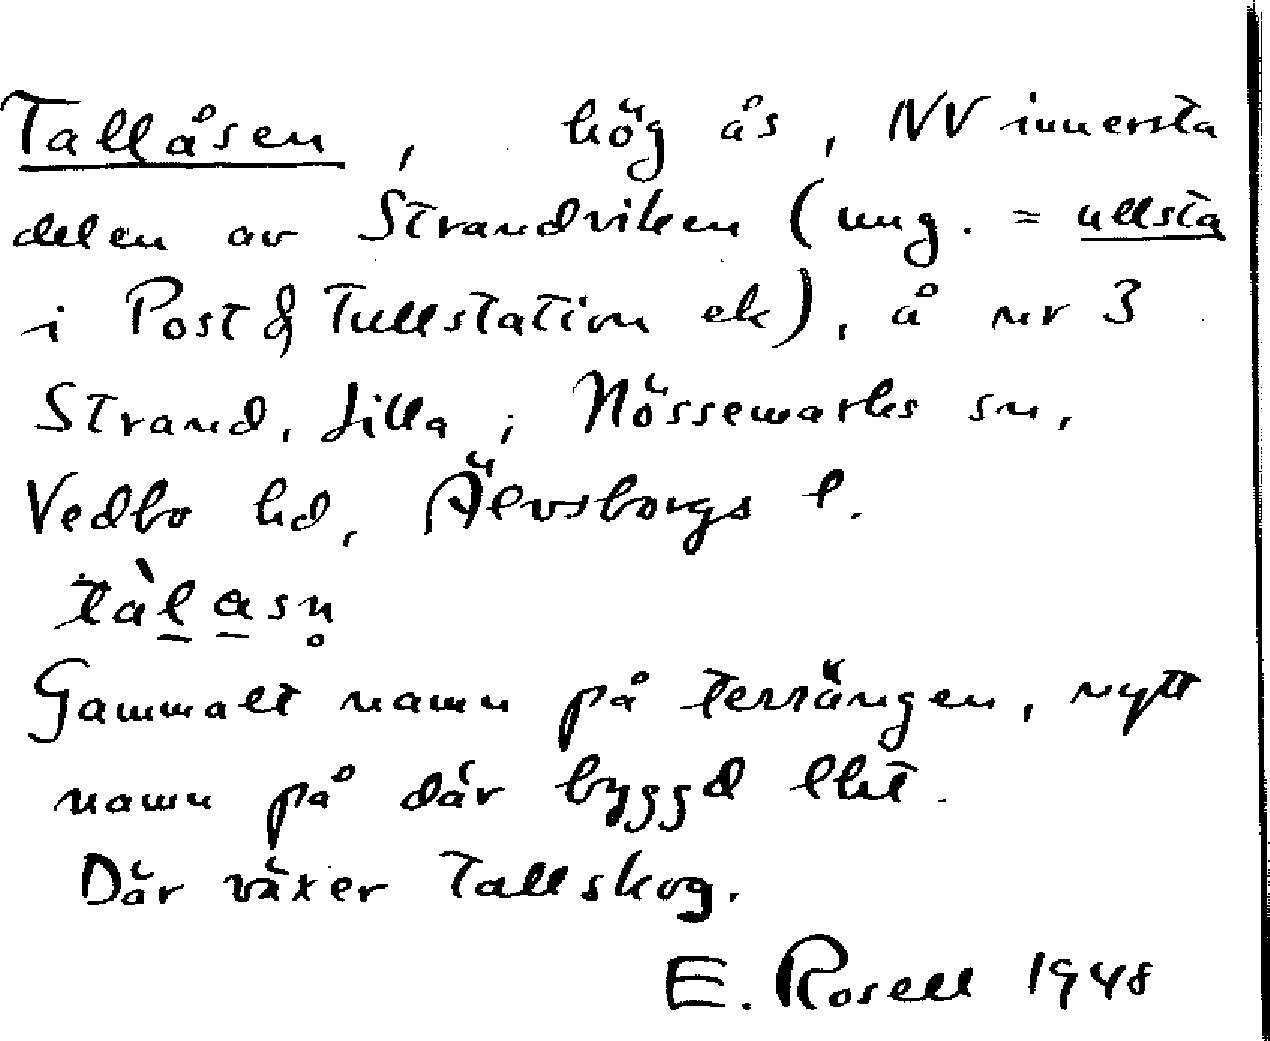 Tallåsen, hög ås, NV innersta
delen av Strandviken (ung. = ullsta
i Post & Tullstation ek), å nr 3
Strand, Lilla, Nössemarks sn,
Vedbo hd, Älvsborgs l.
tàl̠a̠sn̥
Gammalt namn på terrängen, nytt
namn på där byggd lht.
Där växer Tallskog.
E. Rosell 1948